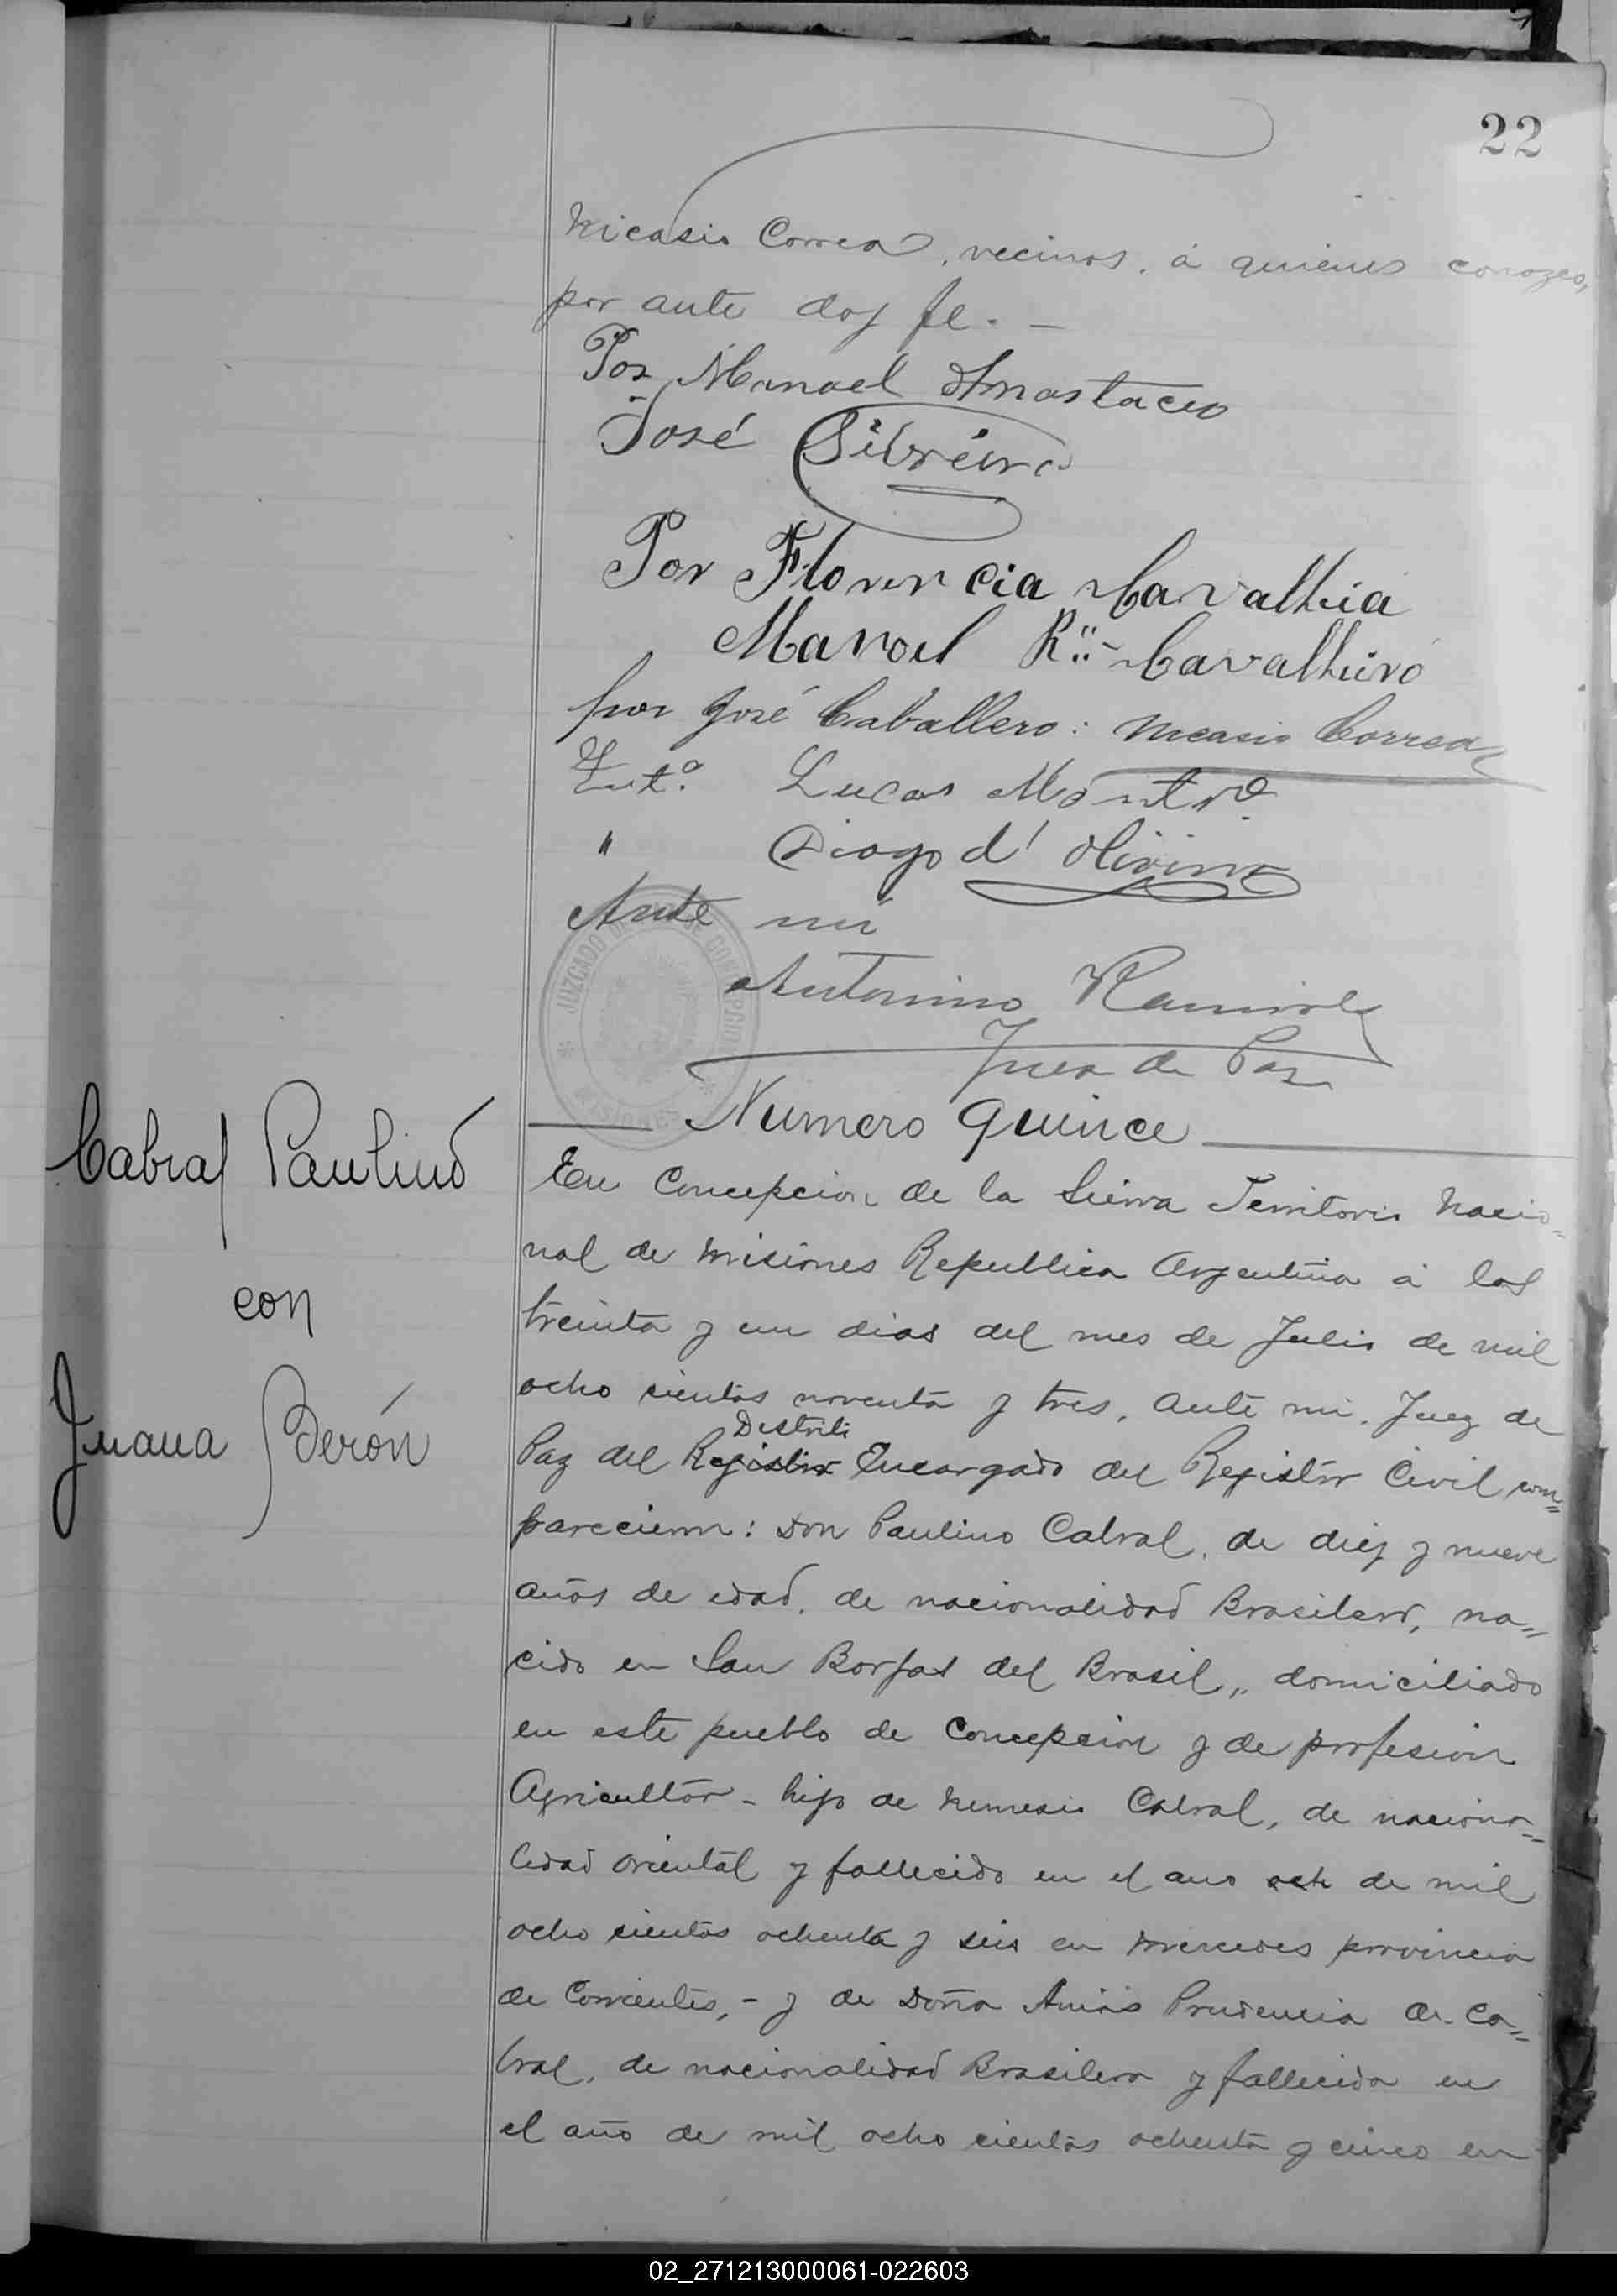 22
Nicasio Correa, vecinos, á quienes conozco,
por ante doy fe. —
Por Manoel Anastacio
José Silveira
Por Florencia Cavalhia
Manoel R.. Cavalheiro
por José Caballero: Nicasio Correa
Lucas
" Diogo d' Oliveira
Ante mi
JUZGADO DE PAZ DE CONCEPCION
MISIONES
Antonino Ramirez
Juez de Paz
Numero quince
Cabral Paulino
con
Juana Berón
En Concepcion de la Sierra Territorio Nacio=
nal de Misiones Republica Argentina á los
treinta y un dias del mes de Julio de mil
ocho sientos noventa y tres, ante mi, Juez de
Distrito
Paz del Registro Encargado del Registro Civil com=
parecieron: Don Paulino Cabral, de diez y nueve
años de edad, de nacionalidad Brasilero, na=
cido en San Borjas del Brasil,, domiciliado
en este pueblo de Concepcion y de profesion
Agricultor - hijo de Nemesio Cabral, de naciona=
lidad oriental y fallecido en el ano och de mil
ocho sientos ochenta y seis en Mercedes provincia
de Corrientes, - y de Doña Prudencia de Ca=
bral, de nacionalidad Brasilera y fallecida en
el año de mil ocho cientos ochenta y cinco en
02_271213000061-022603